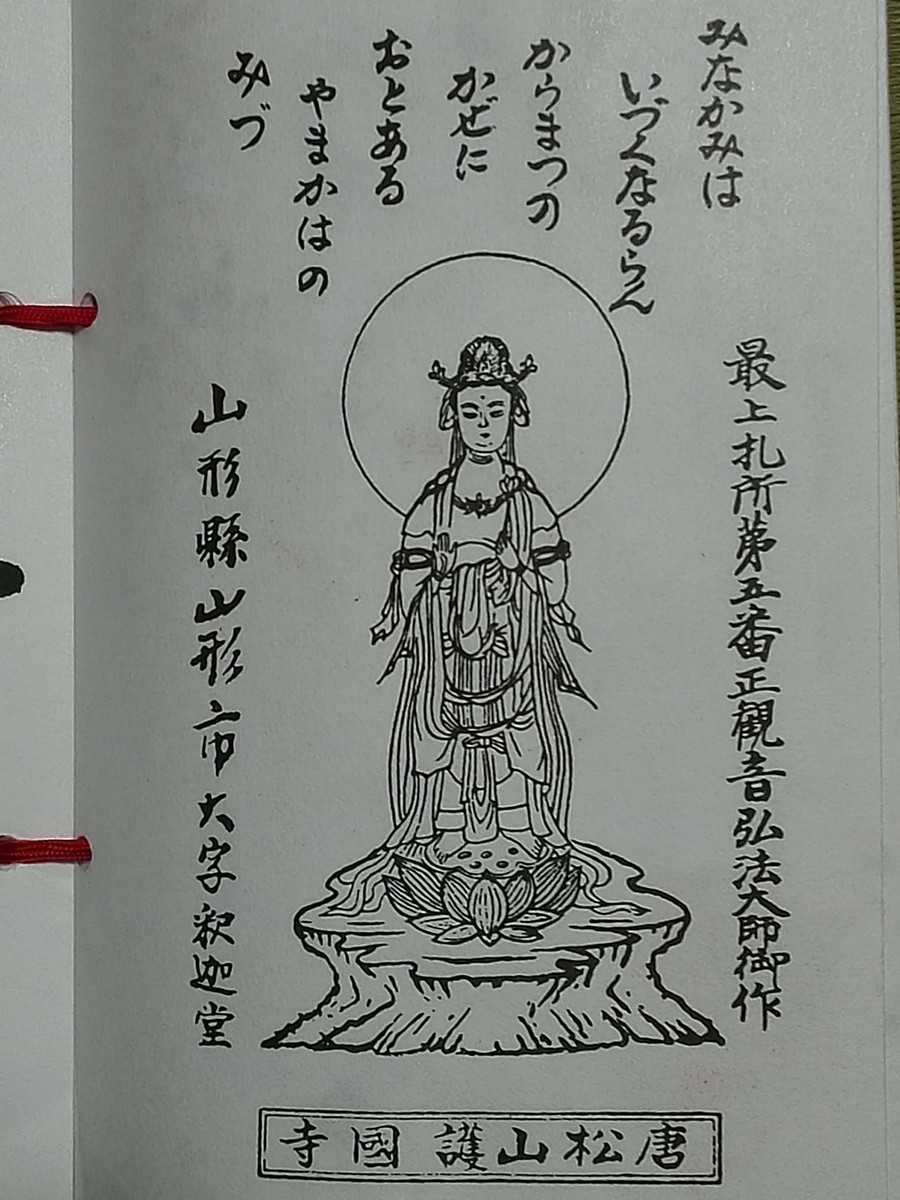 みなかみは
いづくなるらん
からまつの
かぜに
おとある
やまかはの
みづ
最上札所第五番正観音弘法大師御作
山形縣山形市大字釈迦堂
唐松山護國寺